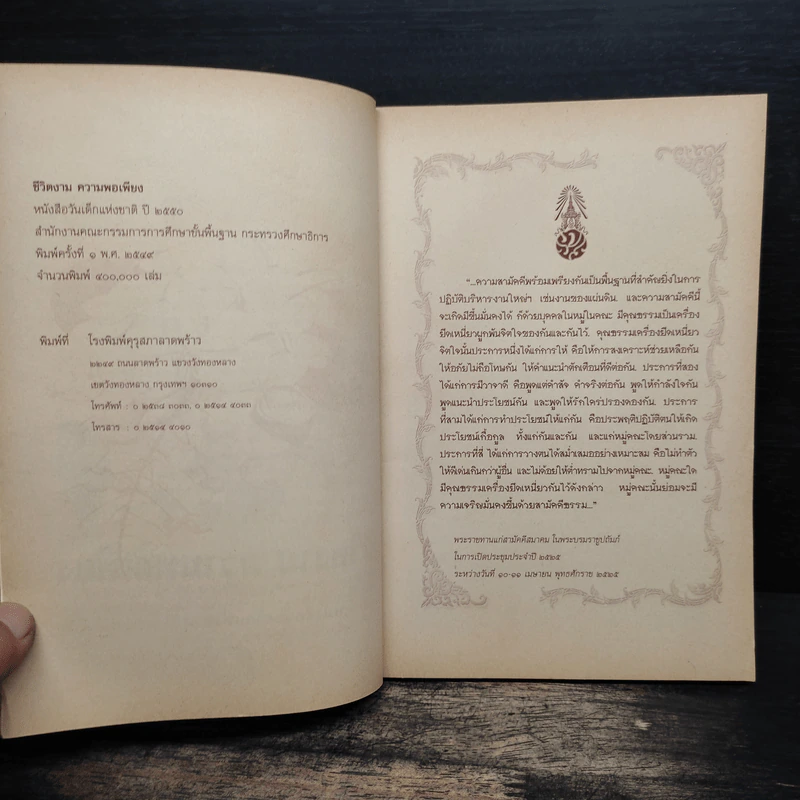 ชีวิตงาม ความพอเพียง
หนังสือวันเด็กแห่งชาติ ปี ๒๕๕๐
สำนักงานคณะกรรมการการศึกษาขั้นพื้นฐาน กระทรวงศึกษาธิการ
พิมพ์ครั้งที่ ๑ พ.ศ. ๒๕๔๙
จำนวนพิมพ์ ๔๐๐,๐๐๐ เล่ม
พิมพ์ที่ โรงพิมพ์คุรุสภาลาดพร้าว
๒๒๔๙ ถนนลาดพร้าว แขวงวังทองหลาง
เขตวังทองหลาง กรุงเทพฯ ๑๐๓๑๐
โทรศัพท์ : ๐ ๒๕๓๘ ๓๐๓๓, ๐ ๒๕๑๔ ๔๐๓๓
โทรสาร : ๐ ๒๕๑๔ ๔๐๑๐
"...ความสามัคคีพร้อมเพรียงกันเป็นพื้นฐานที่สำคัญยิ่งในการ
ปฏิบัติบริหารงานใหญ่ๆ เช่นงานของแผ่นดิน. และความสามัคคีนี้
จะเกิดมีขึ้นมั่นคงได้ ก็ด้วยบุคคลในหมู่ในคณะ มีคุณธรรมเป็นเครื่อง
ยึดเหนี่ยวผูกพันจิตใจของกันและกันไว้. คุณธรรมเครื่องยึดเหนี่ยว
จิตใจนั้นประการหนึ่งได้แก่การให้ คือให้การสงเคราะห์ช่วยเหลือกัน
ให้อภัยไม่ถือโทษกัน ให้คำแนะนำตักเตือนที่ดีต่อกัน. ประการที่สอง
ได้แก่การมีวาจาดี คือพูดแต่คำสัจ คำจริงต่อกัน พูดให้กำลังใจกัน
พูดแนะนำประโยชน์กัน และพูดให้รักใคร่ปรองดองกัน. ประการ
ที่สามได้แก่การทำประโยชน์ให้แก่กัน คือประพฤติปฏิบัติตนให้เกิด
ประโยชน์เกื้อกูล ทั้งแก่กันและกัน และแก่หมู่คณะโดยส่วนรวม.
ประการที่สี่ ได้แก่การวางตนได้สม่ำเสมออย่างเหมาะสม คือไม่ทำตัว
ให้ดีเด่นเกินกว่าผู้อื่น และไม่ด้อยให้ต่ำทรามไปจากหมู่คณะ. หมู่คณะใด
มีคุณธรรมเครื่องยึดเหนี่ยวกันไว้ดังกล่าว หมู่คณะนั้นย่อมจะมี
ความเจริญมั่นคงขึ้นด้วยสามัคคีธรรม..."
พระราชทานแก่สามัคคีสมาคม ในพระบรมราชูปถัมภ์
ในการเปิดประชุมประจำปี ๒๕๒๕
ระหว่างวันที่ ๑๐-๑๑ เมษายน พุทธศักราช ๒๕๒๕